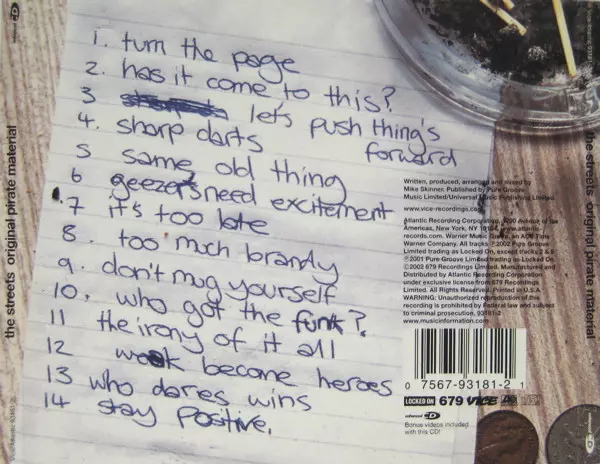 1. turn the page
2. has it come to this?
3 let's push thing's
forward
4. sharp darts
5 same old thing
6 geezers need excitement
7 it's too late
8. too much brandy
9. don't mug yourself
10. who got the funk?
11 the irony of it all
12 weak become heroes
13 who dares wins
14 stay positive.
the streets original pirate material
the streets original pirate material
Written, produced, arranged and mixed by
Mike Skinner. Published by Pure Groove
Music Limited/Universal Music Publishing Limited.
www.vice-recordings.com
Atlantic Recording Corporation, 1290 Avenue of the
Americas, New York, NY 10104. www.atlantic-
records.com. Warner Music Group, an AOL Time
Warner Company. All tracks ℗2002 Pure Groove
Limited trading as Locked On, except tracks 2 & 8
℗2001 Pure Groove Limited trading as Locked On
©2002 679 Recordings Limited. Manufactured and
Distributed by Atlantic Recording Corporation
under exclusive license from 679 Recordings
Limited. All Rights Reserved. Printed in U.S.A.
WARNING: Unauthorized reproduction of this
recording is prohibited by Federal law and subject
to criminal prosecution. 93181-2
www.musicinformation.com
0 7567-93181-2 1
LOCKED ON 679 VICE
enhanced CD
Bonus videos included
with this CD!